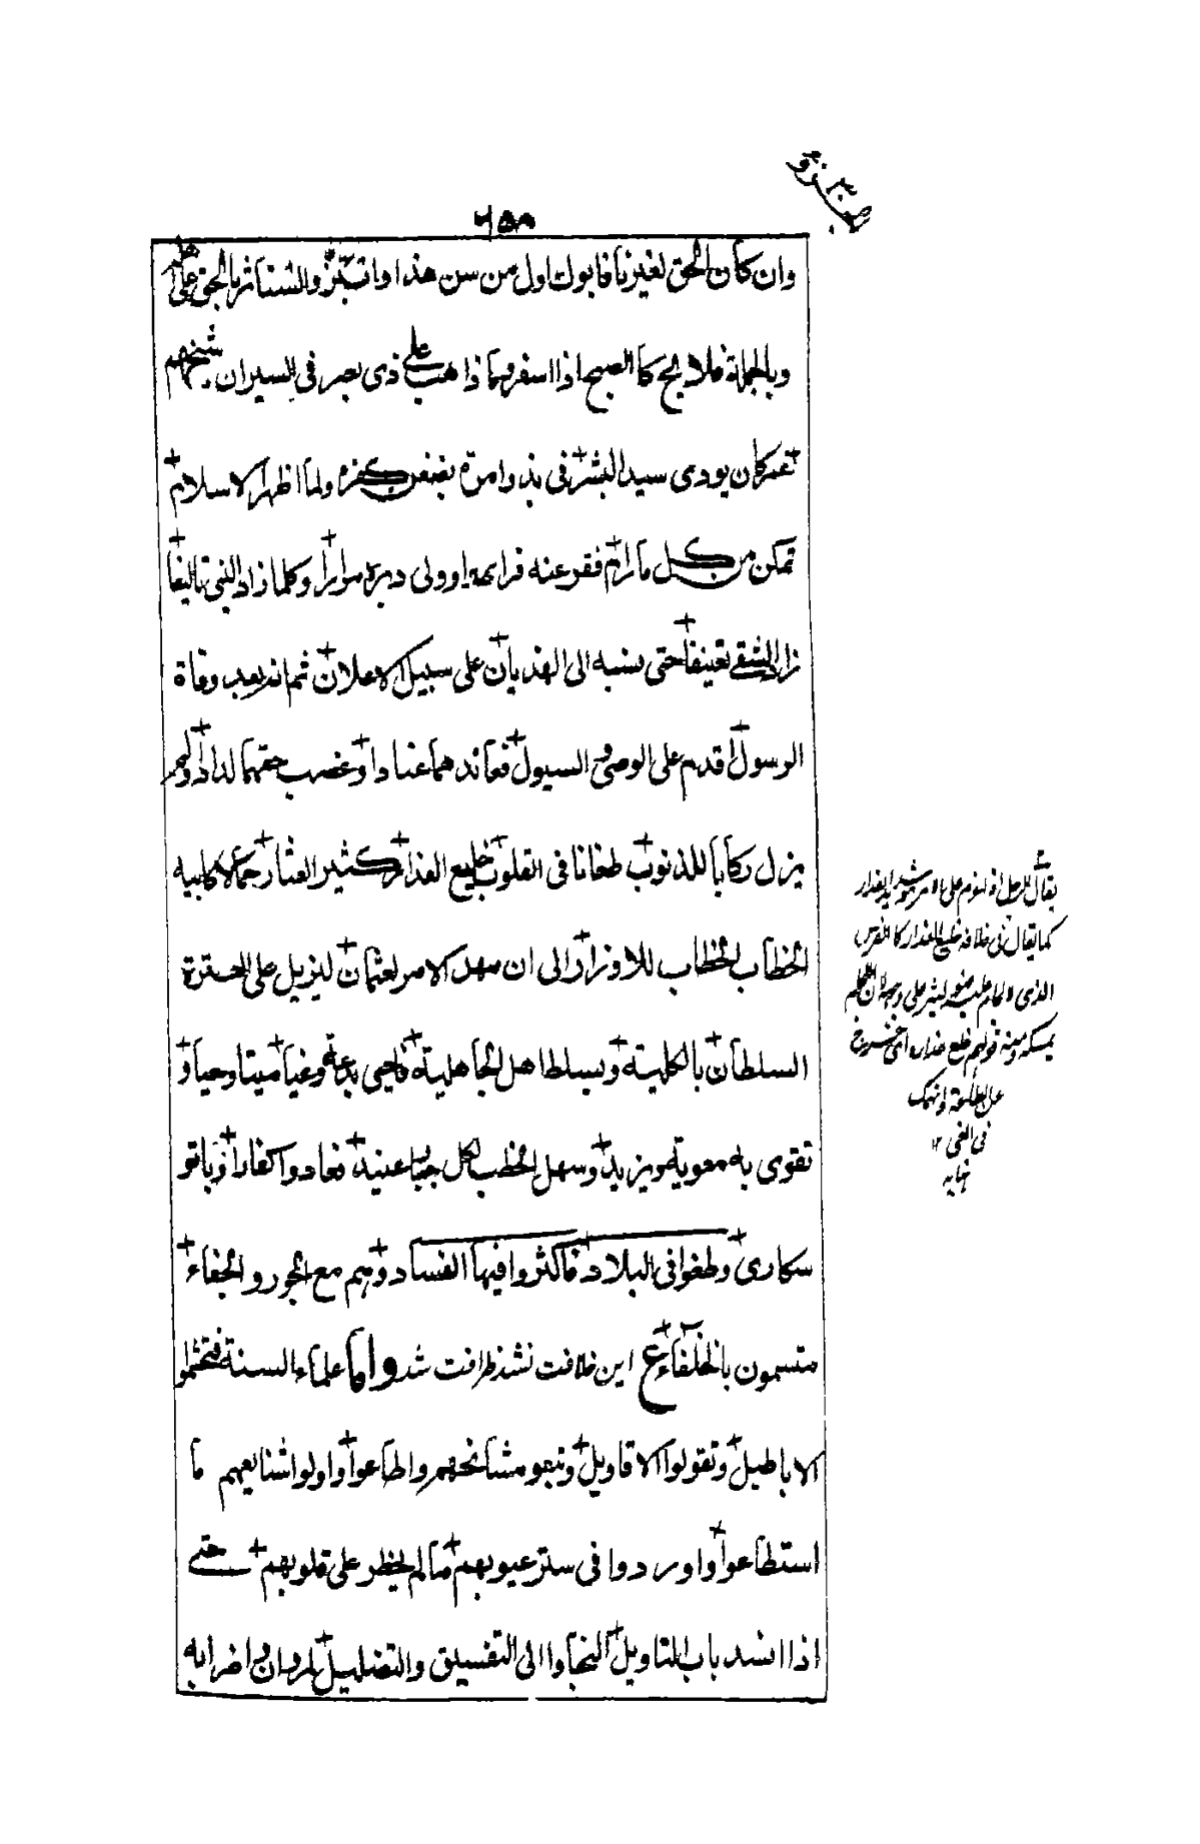 ٦٥٨
وان كان الحق لغيرنا فابوك اول من سن هذا وابتز واستاثر بالحق على اهله
وبالجملة فلايح كالصبح اذا اسفر وما ذا هب على ذى بصر فى السير ان شيخهم
عمر كان يوذى سيد البشر فى بدو امره بضغن كفره ولما اظهر الاسلام
تمكن من كل ما رام ففر عنه فرا وولى دبره مرارا وكلما زاد النبى تاليفا
زاد الشقى تعنيفا حتى نسبه الى الهذيان على سبيل الاعلان ثم انه بعد وفاة
الرسول اقدم على الوصى و البتول فعاندهما عنادا وغصب حقهما لدادا ولم
يزل ركابا للذنوب طعانا فى القلوب خليع العذار كثير العثار حمالا كابيه
الخطاب لخطاب للاوزار الى ان مهد الامر لعثمان ليزيل على العترة
السلطان بالكلية وبسلط اهل الجاهلية فاحيى بدعة وغيا ميتا وحيا و
تقوى به معوية ويزيد وسهل الخطب لكل جبار عنيد فعادوا كفارا وباتو
سكارى وطغوا فى البلاد فاكثروا فيها الفساد وهم مع الجور والجفاء
متسمون بالخلفاء ع اين خلافت نشد ظرافت شد واما علماء السنة فتحملوا
الاباطيل وتقولوا الاقاويل وتبعو مشائخهم واطاعوا واولوا شنايعهم ما
استطاعوا واوردوا فى ستر عيوبهم ما لم يخطر على قلوبهم حتى
اذا انسد باب التاويل التجاوا الى التفسيق والتضليل لمروان واضرابه
يقال للرجل اذا عزم على الامر هو شديد العذار
كما يقال فى خلافه خليع العذار كالفرس
الذى لا لجام عليه فهو يعير على وجهه لان اللجام
يمسكه ومنه قولهم خلع عذاره اى خرج
عن الطاعة وانهمك
فى الغى ١٢
نهايه